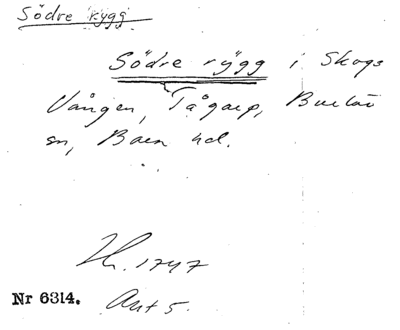 Södre rygg
Södre rygg i Skogs
Vången, Tågarp, Burlöv
sn, Bara hd.
H. 1747
Nr 6314. Akt 5.